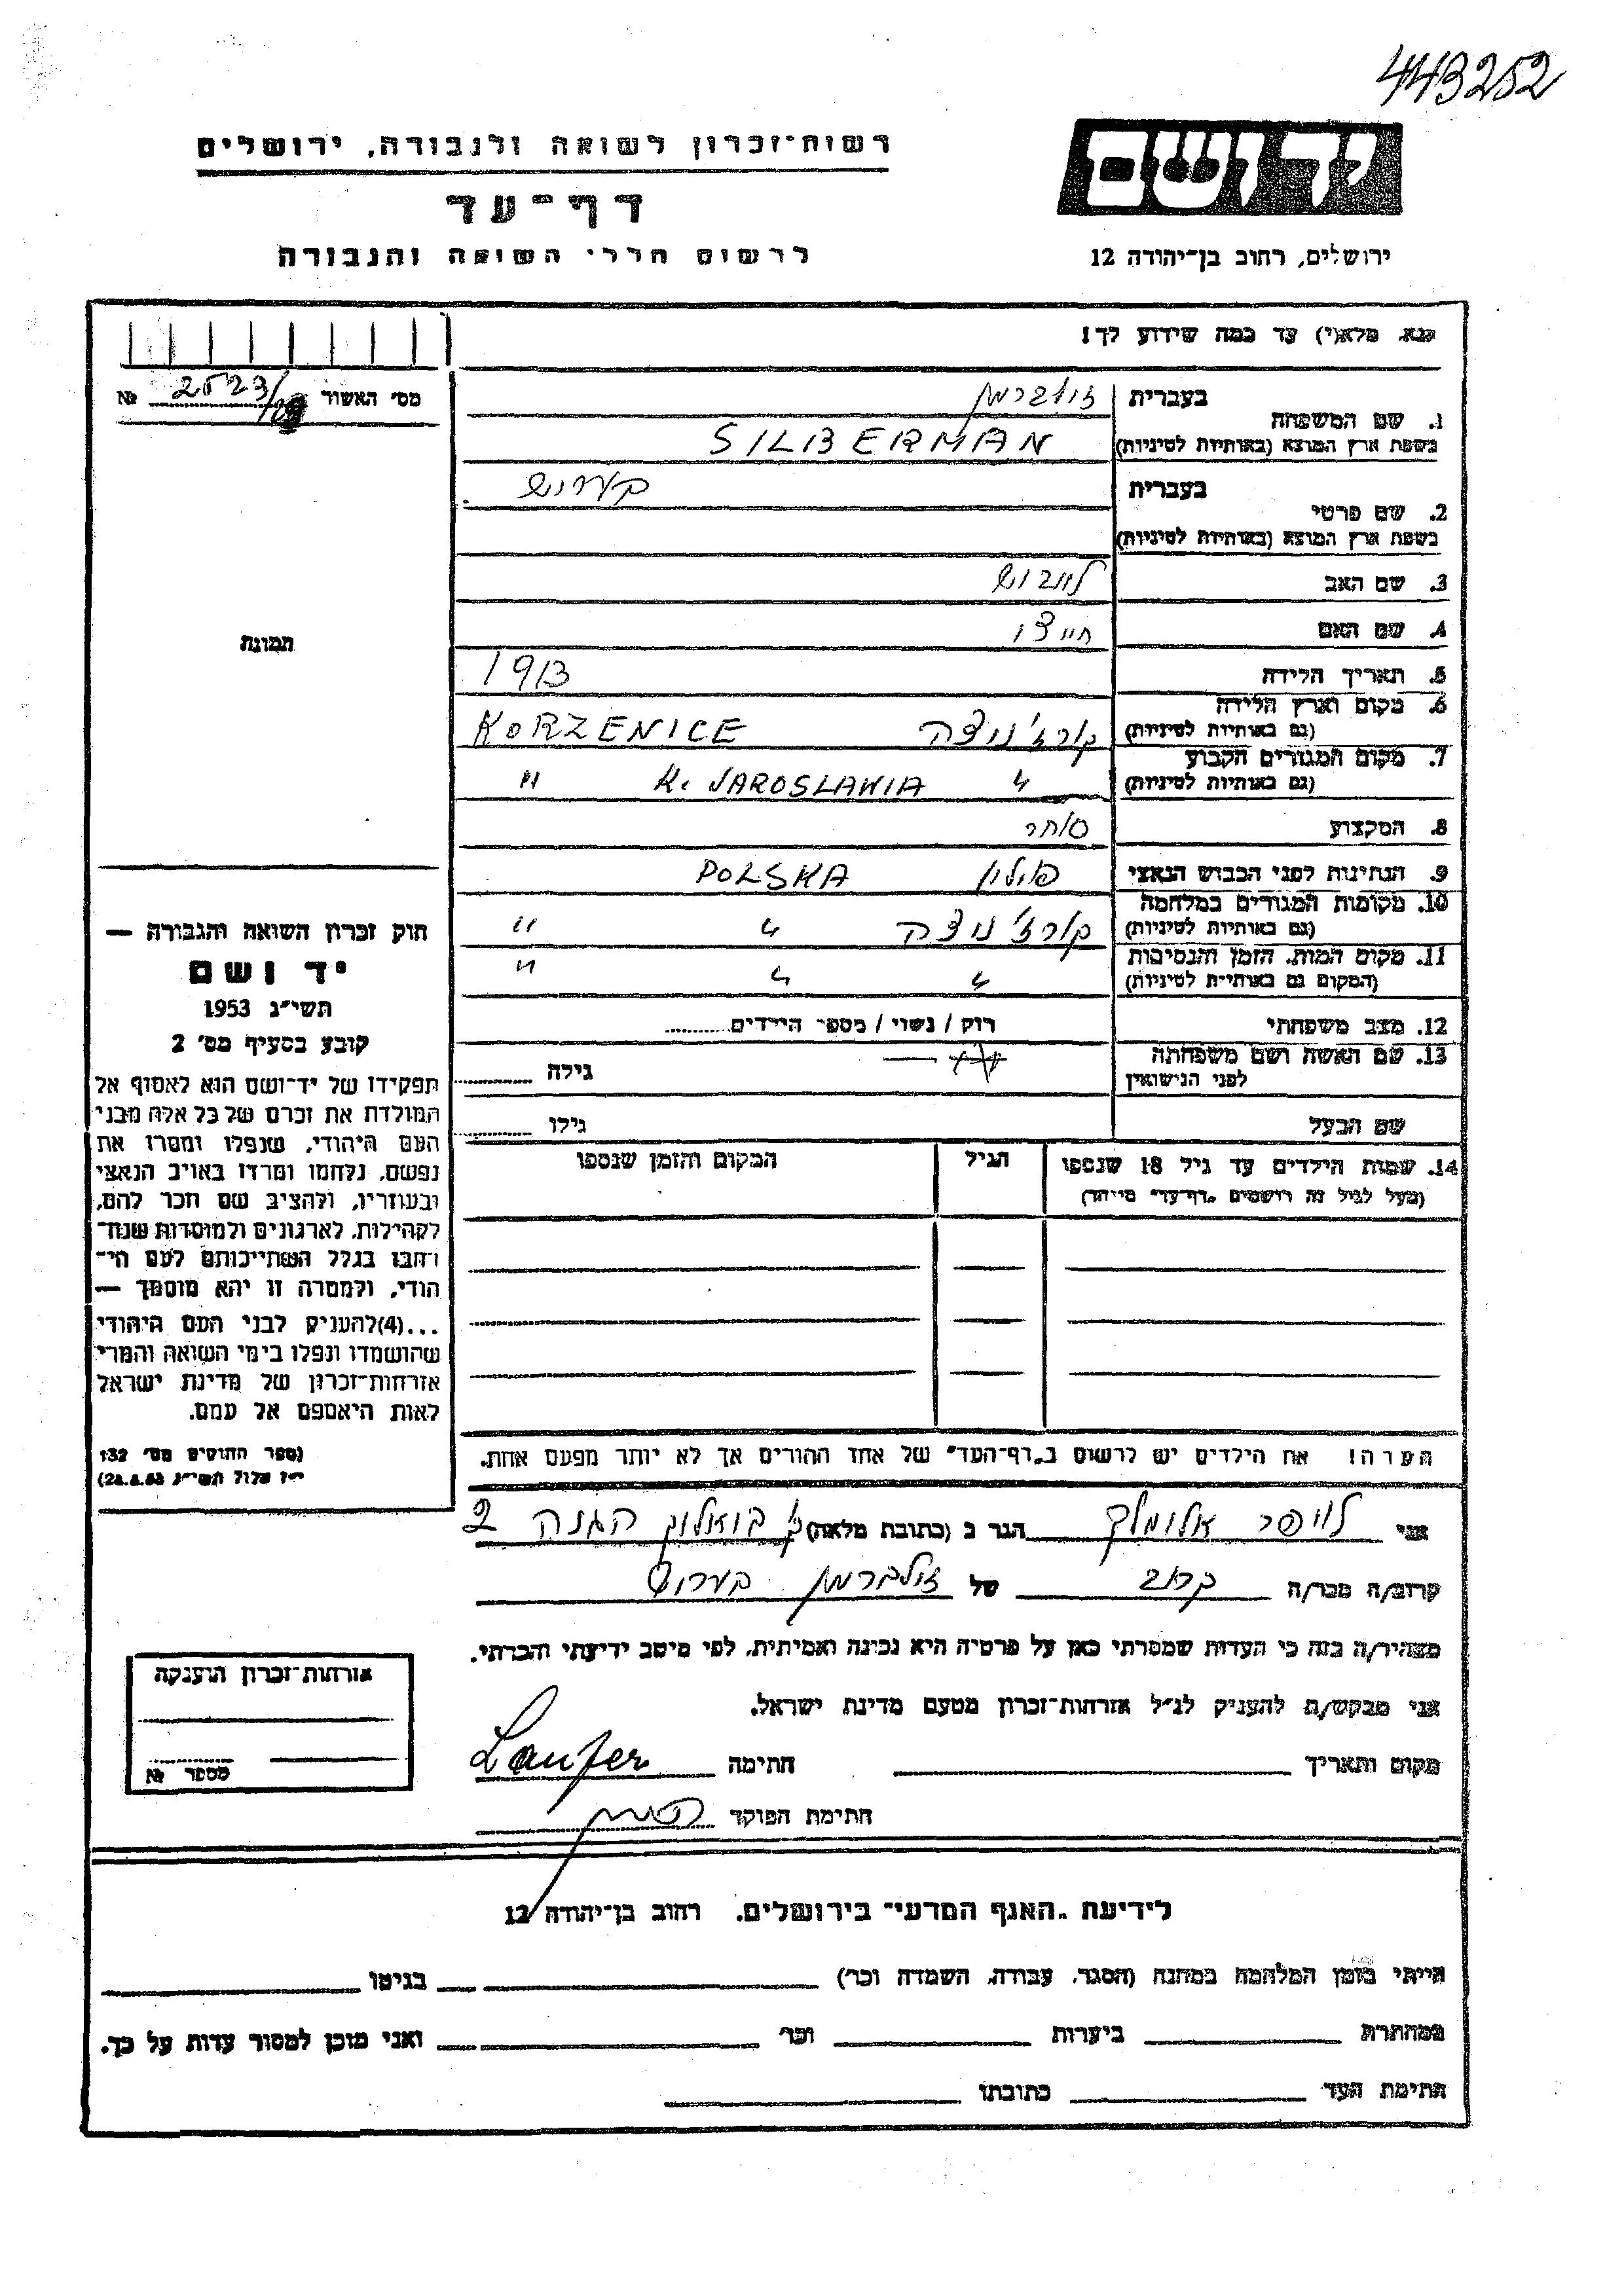 443252
רשות־זכרון לשואה ולגבורה, ירושלים
דף־עד
לרשום חללי השואה והגבורה
יד ושם
ירושלים, רחוב בן־יהודה 12
נא, מלא(י) עד כמה שידוע לך!
מס׳ האשור 2523/ №
1. שם המשפחה
בעברית זילברמן
בשפת ארץ המוצא (באותיות לטיניות) SILBERMAN
2. שם פרטי
בעברית
בשפת ארץ המוצא (באותיות לטיניות)
3. שם האב לייבוש
4. שם האם
5. תאריך הלידה 1913
6. מקום וארץ הלידה (גם באותיות לטיניות) קורז'ניצה KORZENICE
7. מקום המגורים הקבוע (גם באותיות לטיניות) " K. JAROSLAWIA "
8. המקצוע סוחר
9. הנתינות לפני הכבוש הנאצי פולין POLSKA
10. מקומות המגורים במלחמה (גם באותיות לטיניות) קורז'ניצה " "
11. מקום המות, הזמן והנסיבות (המקום גם באותיות לטיניות) " " "
12. מצב משפחתי רוק / נשוי / מספר הילדים
13. שם האשה ושם משפחתה לפני הנישואין גילה
שם הבעל גילו
14. שמות הילדים עד גיל 18 שנספו הגיל המקום והזמן שנספו
(מעל לגיל זה רושמים "דף־עד" מיוחד)
הערה! את הילדים יש לרשום ב"דף־העד" של אחד ההורים אך לא יותר מפעם אחת.
תמונה
חוק זכרון השואה והגבורה —
יד ושם
תשי״ג 1953
קובע בסעיף מס׳ 2
תפקידו של יד־ושם הוא לאסוף אל
המולדת את זכרם של כל אלה מבני
העם היהודי, שנפלו ומסרו את
נפשם, נלחמו ומרדו באויב הנאצי
ובעוזריו, ולהציב שם וזכר להם,
לקהילות, לארגונים ולמוסדות שנח־
רבו בגלל השתייכותם לעם הי־
הודי, ולמטרה זו יהא מוסמך —
...(4)להעניק לבני העם היהודי
שהושמדו ונפלו בימי השואה והמרי
אזרחות־זכרון של מדינת ישראל
לאות היאספם אל עמם.
(ספר החוקים מס׳ 132
י״ז אלול תשי״ג 28.8.53)
אני לויפר אלימלך הגר ב (כתובת מלאה) ק' ביאליק הגנה 2
קרוב/ה מכר/ה קרוב של זילברמן
מצהיר/ה בזה כי העדות שמסרתי כאן על פרטיה היא נכונה ואמיתית, לפי מיטב ידיעתי והכרתי.
אני מבקש/ת להעניק לנ״ל אזרחות־זכרון מטעם מדינת ישראל.
מקום ותאריך חתימה Laufer
חתימת הפוקד
אזרחות־זכרון הוענקה
מספר №
לידיעת "האגף המדעי" בירושלים, רחוב בן־יהודה 12
הייתי בזמן המלחמה במחנה (הסגר, עבודה, השמדה וכו׳) בגיטו
במחתרת ביערות וכו׳ ואני מוכן למסור עדות על כך.
חתימת העד כתובתו